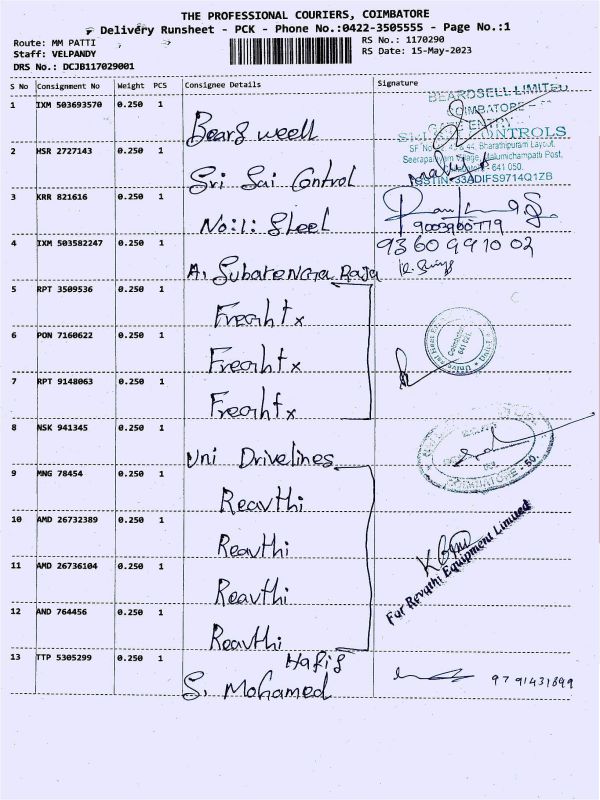 THE PROFESSIONAL COURIERS, COIMBATORE
Delivery Runsheet - PCK - Phone No.:0422-3505555 - Page No.:1
Route: MM PATTI
RS No.: 1170290
Staff: VELPANDY
RS Date: 15-May-2023
DRS No.: DCJB117029001
S No Consignment No Weight PCS Consignee Details Signature
1 IXM 503693570 0.250 1
Bearg well
BEARDSELL LIMITED
COIMBATORE
2 HSR 2727143 0.250 1
Sri Sai Control
CONTROLS
Bharathipuram Layout,
Malumichampatti Post,
641 050.
GSTIN:33ADIFS9714Q1ZB
3 KRR 821616 0.250 1
No:1: Steel
9003900779
4 IXM 503582247 0.250 1
A. Subarengra Raja
93 60 99 10 02
5 RPT 3509536 0.250 1
Freaht x
6 PON 7160622 0.250 1
Freaht x
Coimbatore
641 021
7 RPT 9148063 0.250 1
Freaht x
8 NSK 941345 0.250 1
Uni Drivelines
COIMBATORE - 50.
9 MNG 78454 0.250 1
Reavthi
10 AMD 26732389 0.250 1
Reavthi
For Revathi Equipment Limited
11 AMD 26736104 0.250 1
Reavthi
12 AND 764456 0.250 1
Reavthi
13 TTP 5305299 0.250 1
Hafis
S. Mohamed
97 91431899